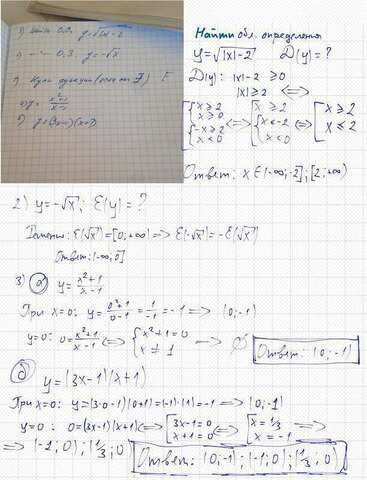 1) Найти О.О. y=√|x|-2
2) —"— О.З. y=-√x
y = x²+1 / x-1
y=(3x-1)(x+1)
Найти обл. определения
y=√|x|-2   D(y)=?
D(y): |x|-2 ≥0
|x|≥2 <=>
[ { x≥2 x≥0 { -x≥2 x<0 <=> [ { x≥2 { x<-2 x<0 <=> [ x≥2 x≤2
Ответ: x∈(-∞;-2];[2;+∞)
2) y=-√x; E(y)=?
E(√x)=[0;+∞) => E(-√x)=-E(√x)
Ответ: (-∞;0]
3) а) y= x²+1 / x-1
При x=0: y= 0²+1 / 0-1 = 1 / -1 = -1 => (0;-1)
y=0: 0= x²+1 / x-1 <=> { x²+1=0 x≠1 → ∅ Ответ: (0;-1)
б) y=(3x-1)(x+1)
При x=0: y=(3·0-1)(0+1)=(-1)·(1)=-1 => (0;-1)
y=0: 0=(3x-1)(x+1) <=> [ 3x-1=0 x+1=0 <=> [ x=1/3 x=-1 =>
=> (-1;0);(1/3;0) Ответ: (0;-1);(-1;0);(1/3;0)